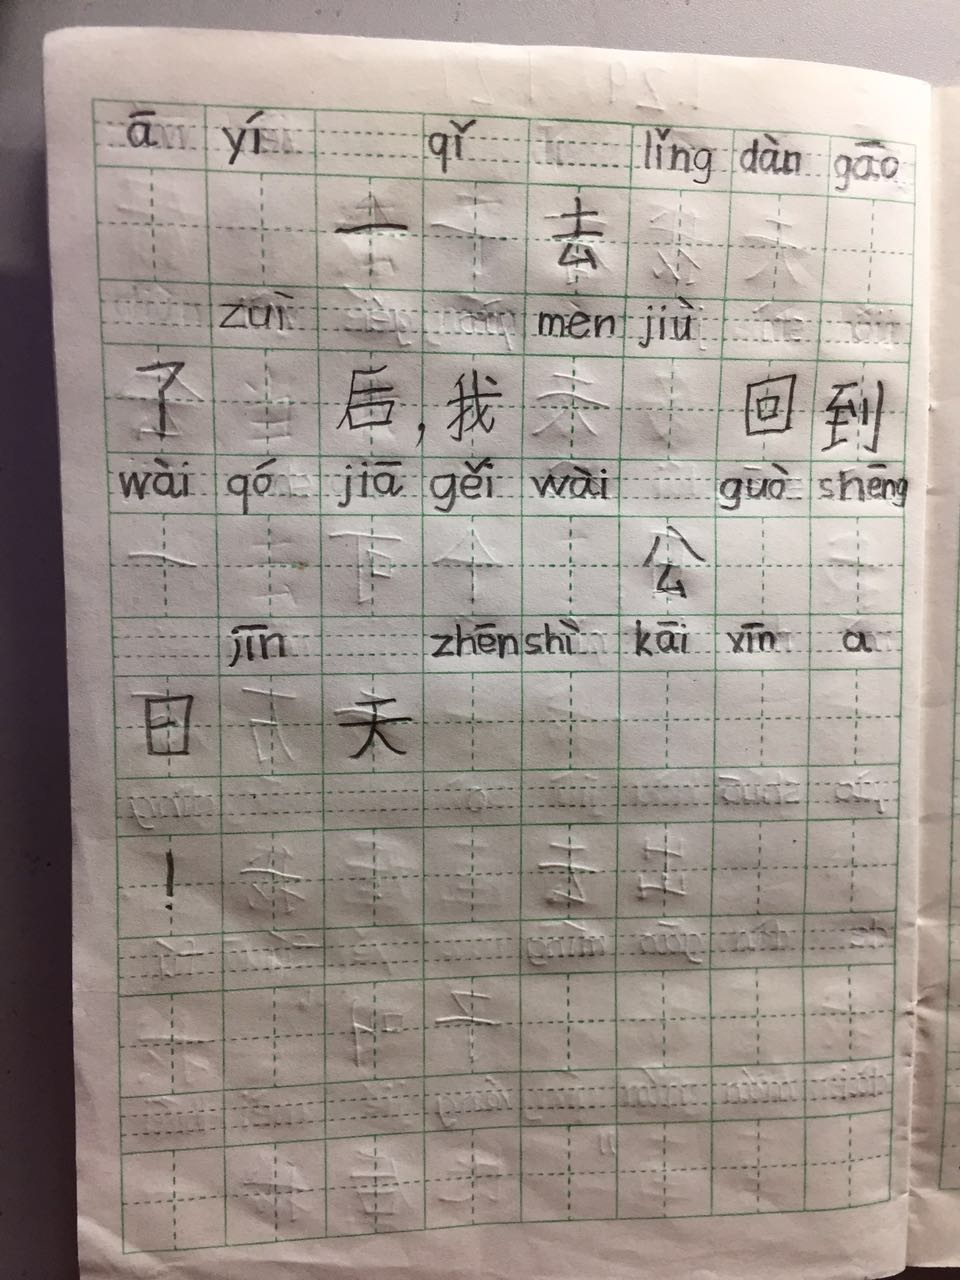 ā yí qǐ lǐng dàn gāo
一 去
zuì mèn jiù
了 后，我 回 到
wài qó jiā gěi wài guò shēng
公
jīn zhēn shì kāi xīn a
日 天
！